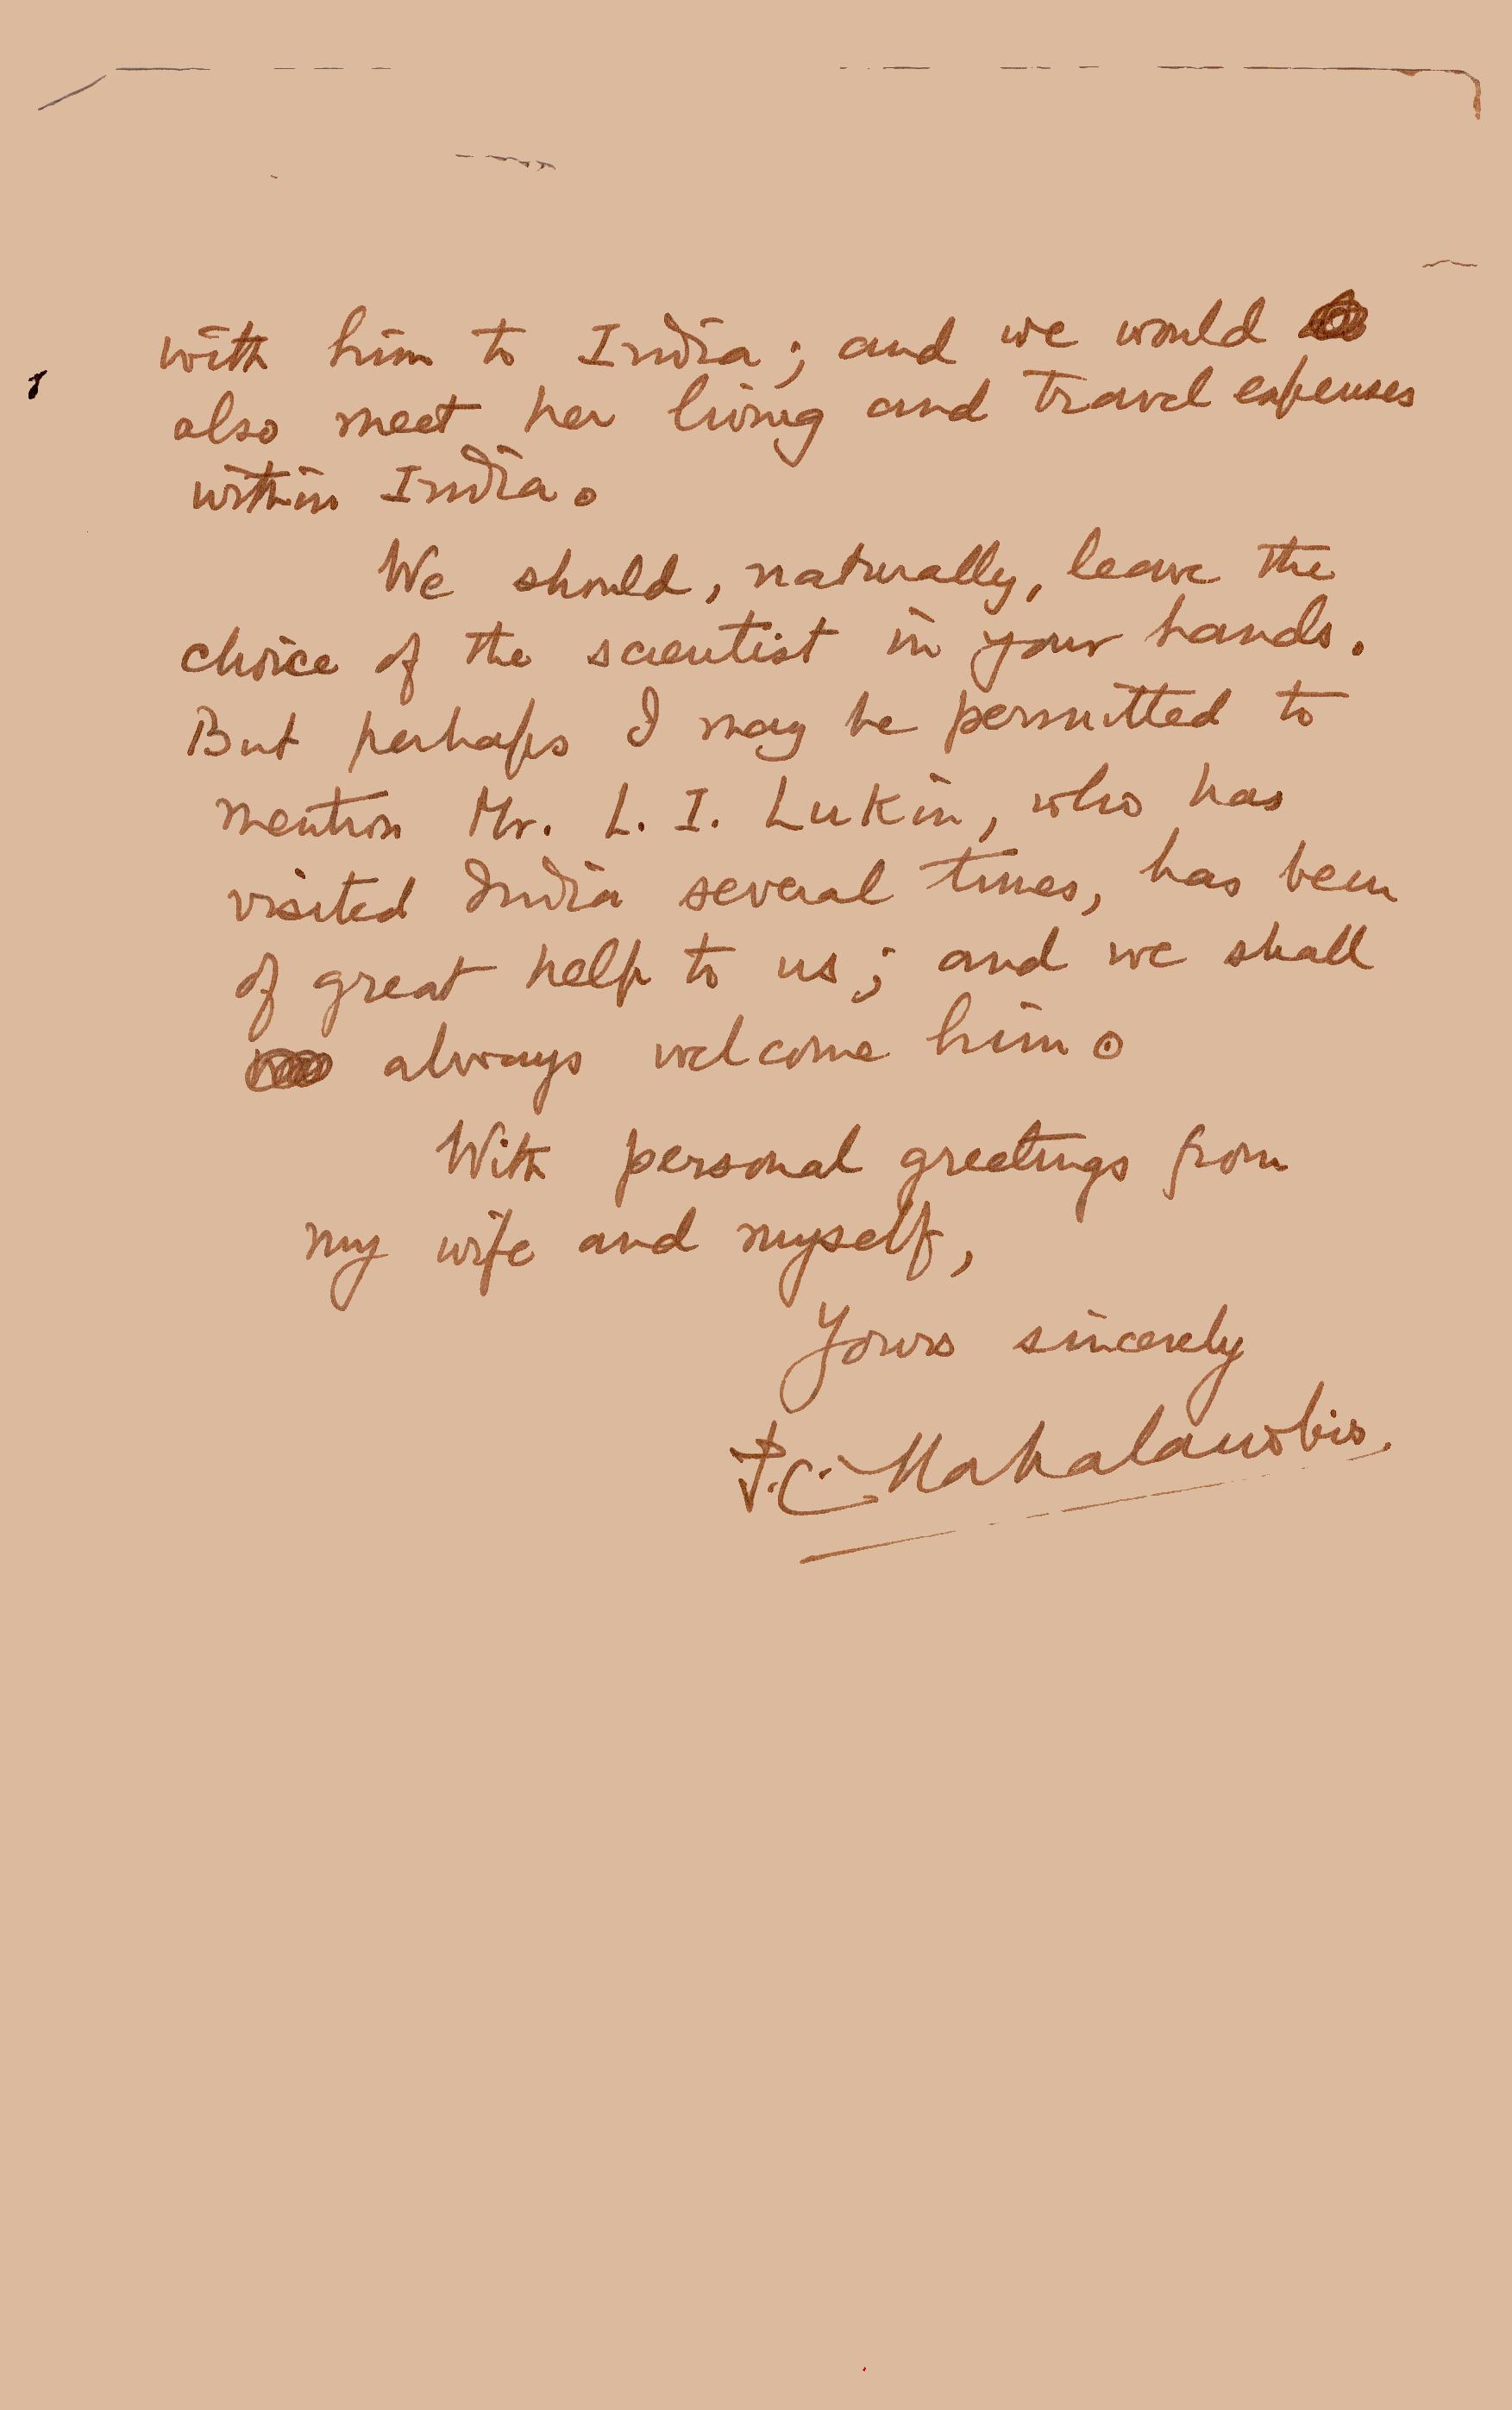 with him to India; and we would
also meet her living and travel expenses
within India.
We should, naturally, leave the
choice of the scientist in your hands.
But perhaps I may be permitted to
mention Mr. L. I. Lukin, who has
visited India several times, has been
of great help to us; and we shall
always welcome him.
With personal greetings from
my wife and myself,
Yours sincerely
P.C. Mahalanobis.